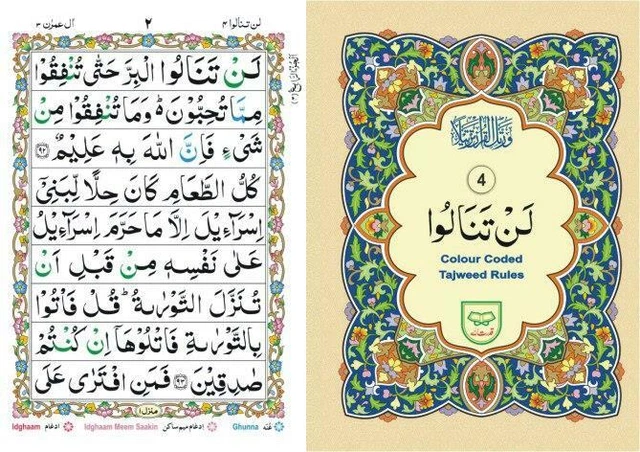 آل عمرٰن ٣
٢
لن تنالوا ٤
لَنْ تَنَالُوا الْبِرَّ حَتّٰى تُنْفِقُوْا
مِمَّا تُحِبُّوْنَ ؕ وَمَا تُنْفِقُوْا مِنْ
شَىْءٍ فَاِنَّ اللّٰهَ بِهٖ عَلِيْمٌ ﴿۹۲﴾
كُلُّ الطَّعَامِ كَانَ حِلًّا لِّبَنِىْۤ
اِسْرَآءِيْلَ اِلَّا مَا حَرَّمَ اِسْرَآءِيْلُ
عَلٰى نَفْسِهٖ مِنْ قَبْلِ اَنْ
تُنَزَّلَ التَّوْرٰىةُ ؕ قُلْ فَاْتُوْا
بِالتَّوْرٰىةِ فَاتْلُوْهَاۤ اِنْ كُنْتُمْ
صٰدِقِيْنَ ﴿۹۳﴾ فَمَنِ افْتَرٰى عَلَى
منزل ١
Idghaam ادغام
Idghaam Meem Saakin ادغام میم ساکن
Ghunna غنه
وَرَتِّلِ الْقُرْاٰنَ تَرْتِيْلًا
4
لَنْ تَنَالُوا
Colour Coded
Tajweed Rules